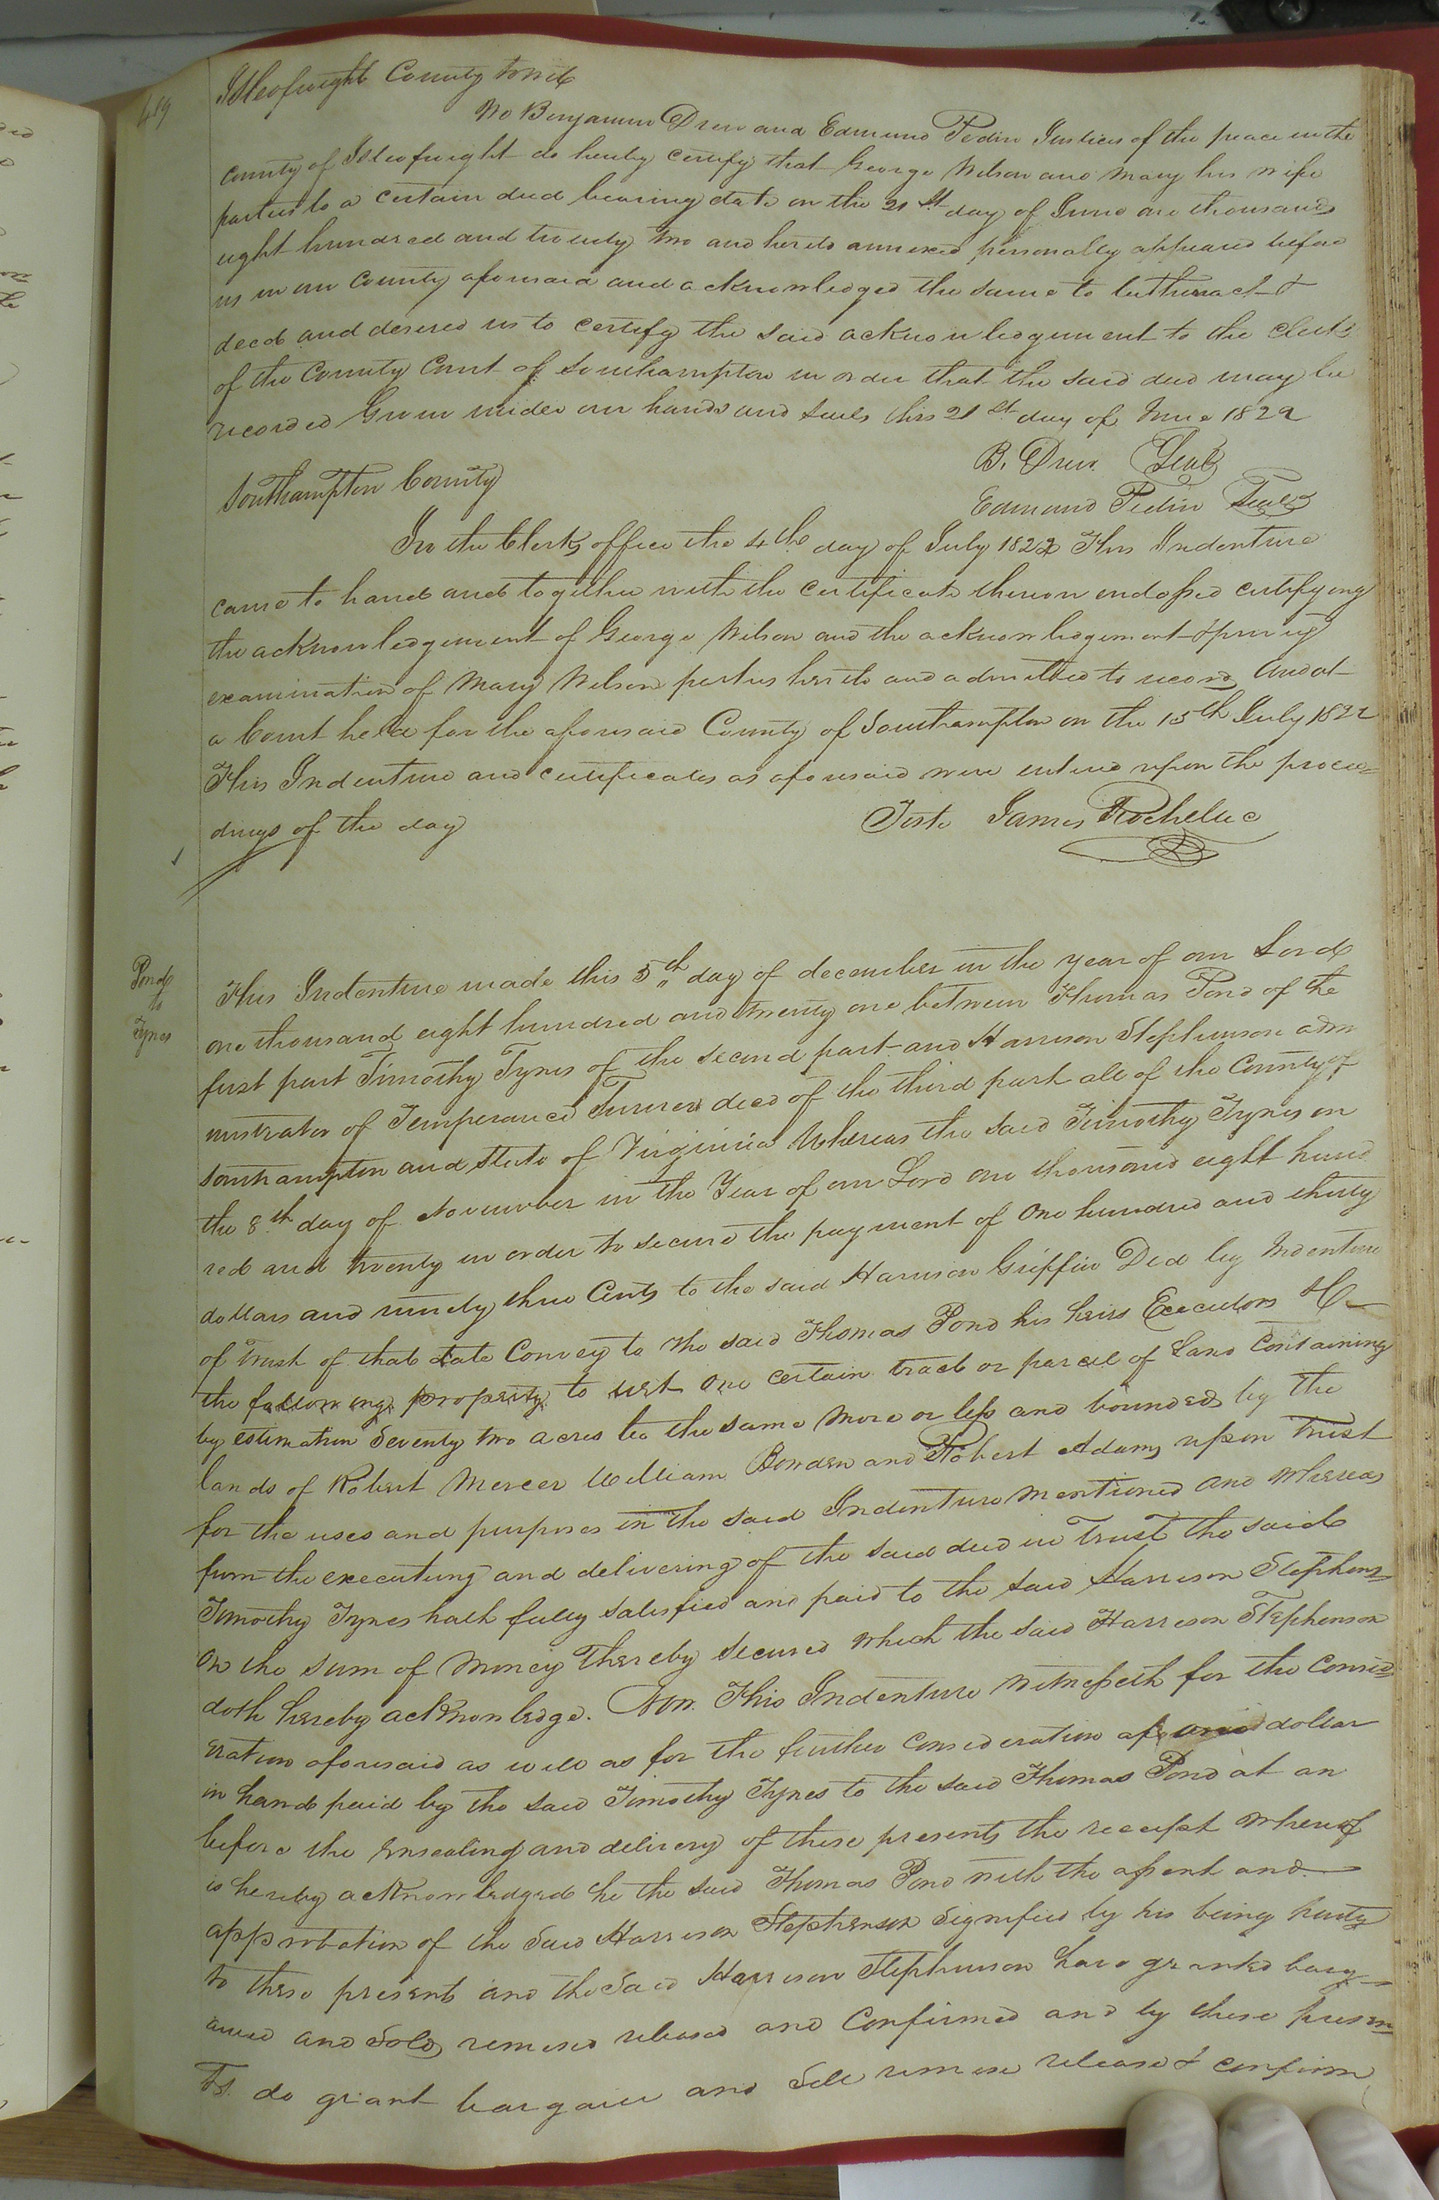 419
Isleofwight County towit
We Benjamin Drew and Edmund Pedin Justices of the peace in the
County of Isleofwight do hereby certify that George Wilson and Mary his wife
parties to a certain deed bearing date on the 21st day of June one thousand
eight hundred and twenty two and hereto annexed personally appeared before
us in our County aforesaid and acknowledged the same to be their act &
deed and desired us to certify the said acknowledgement to the Clerk
of the County Court of Southampton in order that the said deed may be
recorded Given under our hands and seals this 21st day of June 1822
B. Drew Seal
Edmund Pedin Seal
Southampton County
In the Clerks office the 4th day of July 1822 This Indenture
came to hand and together with the certificate thereon endossed certifying
the acknowledgement of George Wilson and the acknowledgement & privy
examination of Mary Wilson parties hereto and admitted to record And at
a Court held for the aforesaid County of Southampton on the 15th July 1822
This Indenture and certificates as aforesaid were entered upon the procee=
dings of the day
Teste James Rochelle C
Pond
to
Tynes
This Indenture made this 5th day of december in the year of our Lord
one thousand eight hundred and twenty one between Thomas Pond of the
first part Timothy Tynes of the second part and Harrison Stephenson adm
inistrator of Temperance Turner decd of the third part all of the County of
Southampton and state of Virginia Whereas the said Timothy Tynes on
the 8th day of November in the Year of our Lord one thousand eight hund
red and twenty in order to secure the payment of One hundred and thirty
dollars and ninety three Cents to the said Harrison Griffin Did by Indenture
of Trust of that date Convey to the said Thomas Pond his heirs Executors &c
the following property to wit One certain tract or parcel of Land Containing
by estimation Seventy two acres be the same More or less and bounded by the
lands of Robert Mercer William Bowden and Robert Adams upon Trust
for the uses and purposes in the said Indenture Mentioned and Whereas
from the executing and delivering of the said deed in Trust the said
Timothy Tynes hath fully satisfied and paid to the said Harrison Stephens=
on the sum of Money Thereby Secured which the said Harrison Stephenson
doth hereby acknowledge. Now This Indenture Witnesseth for the Consid=
eration aforesaid as well as for the further Consideration of one dollar
in hand paid by the said Timothy Tynes to the said Thomas Pond at an
before the ensealing and delivery of these presents the receipt whereof
is hereby acknowledged he the said Thomas Pond with the assent and
approbation of the Said Harrison Stephenson Signified by his being party
to these presents and the Said Harrison Stephenson have granted barg=
ained and Sold, remised released and Confirmed and by these presen=
Ts. do grant bargain and Sell remise release & confirm